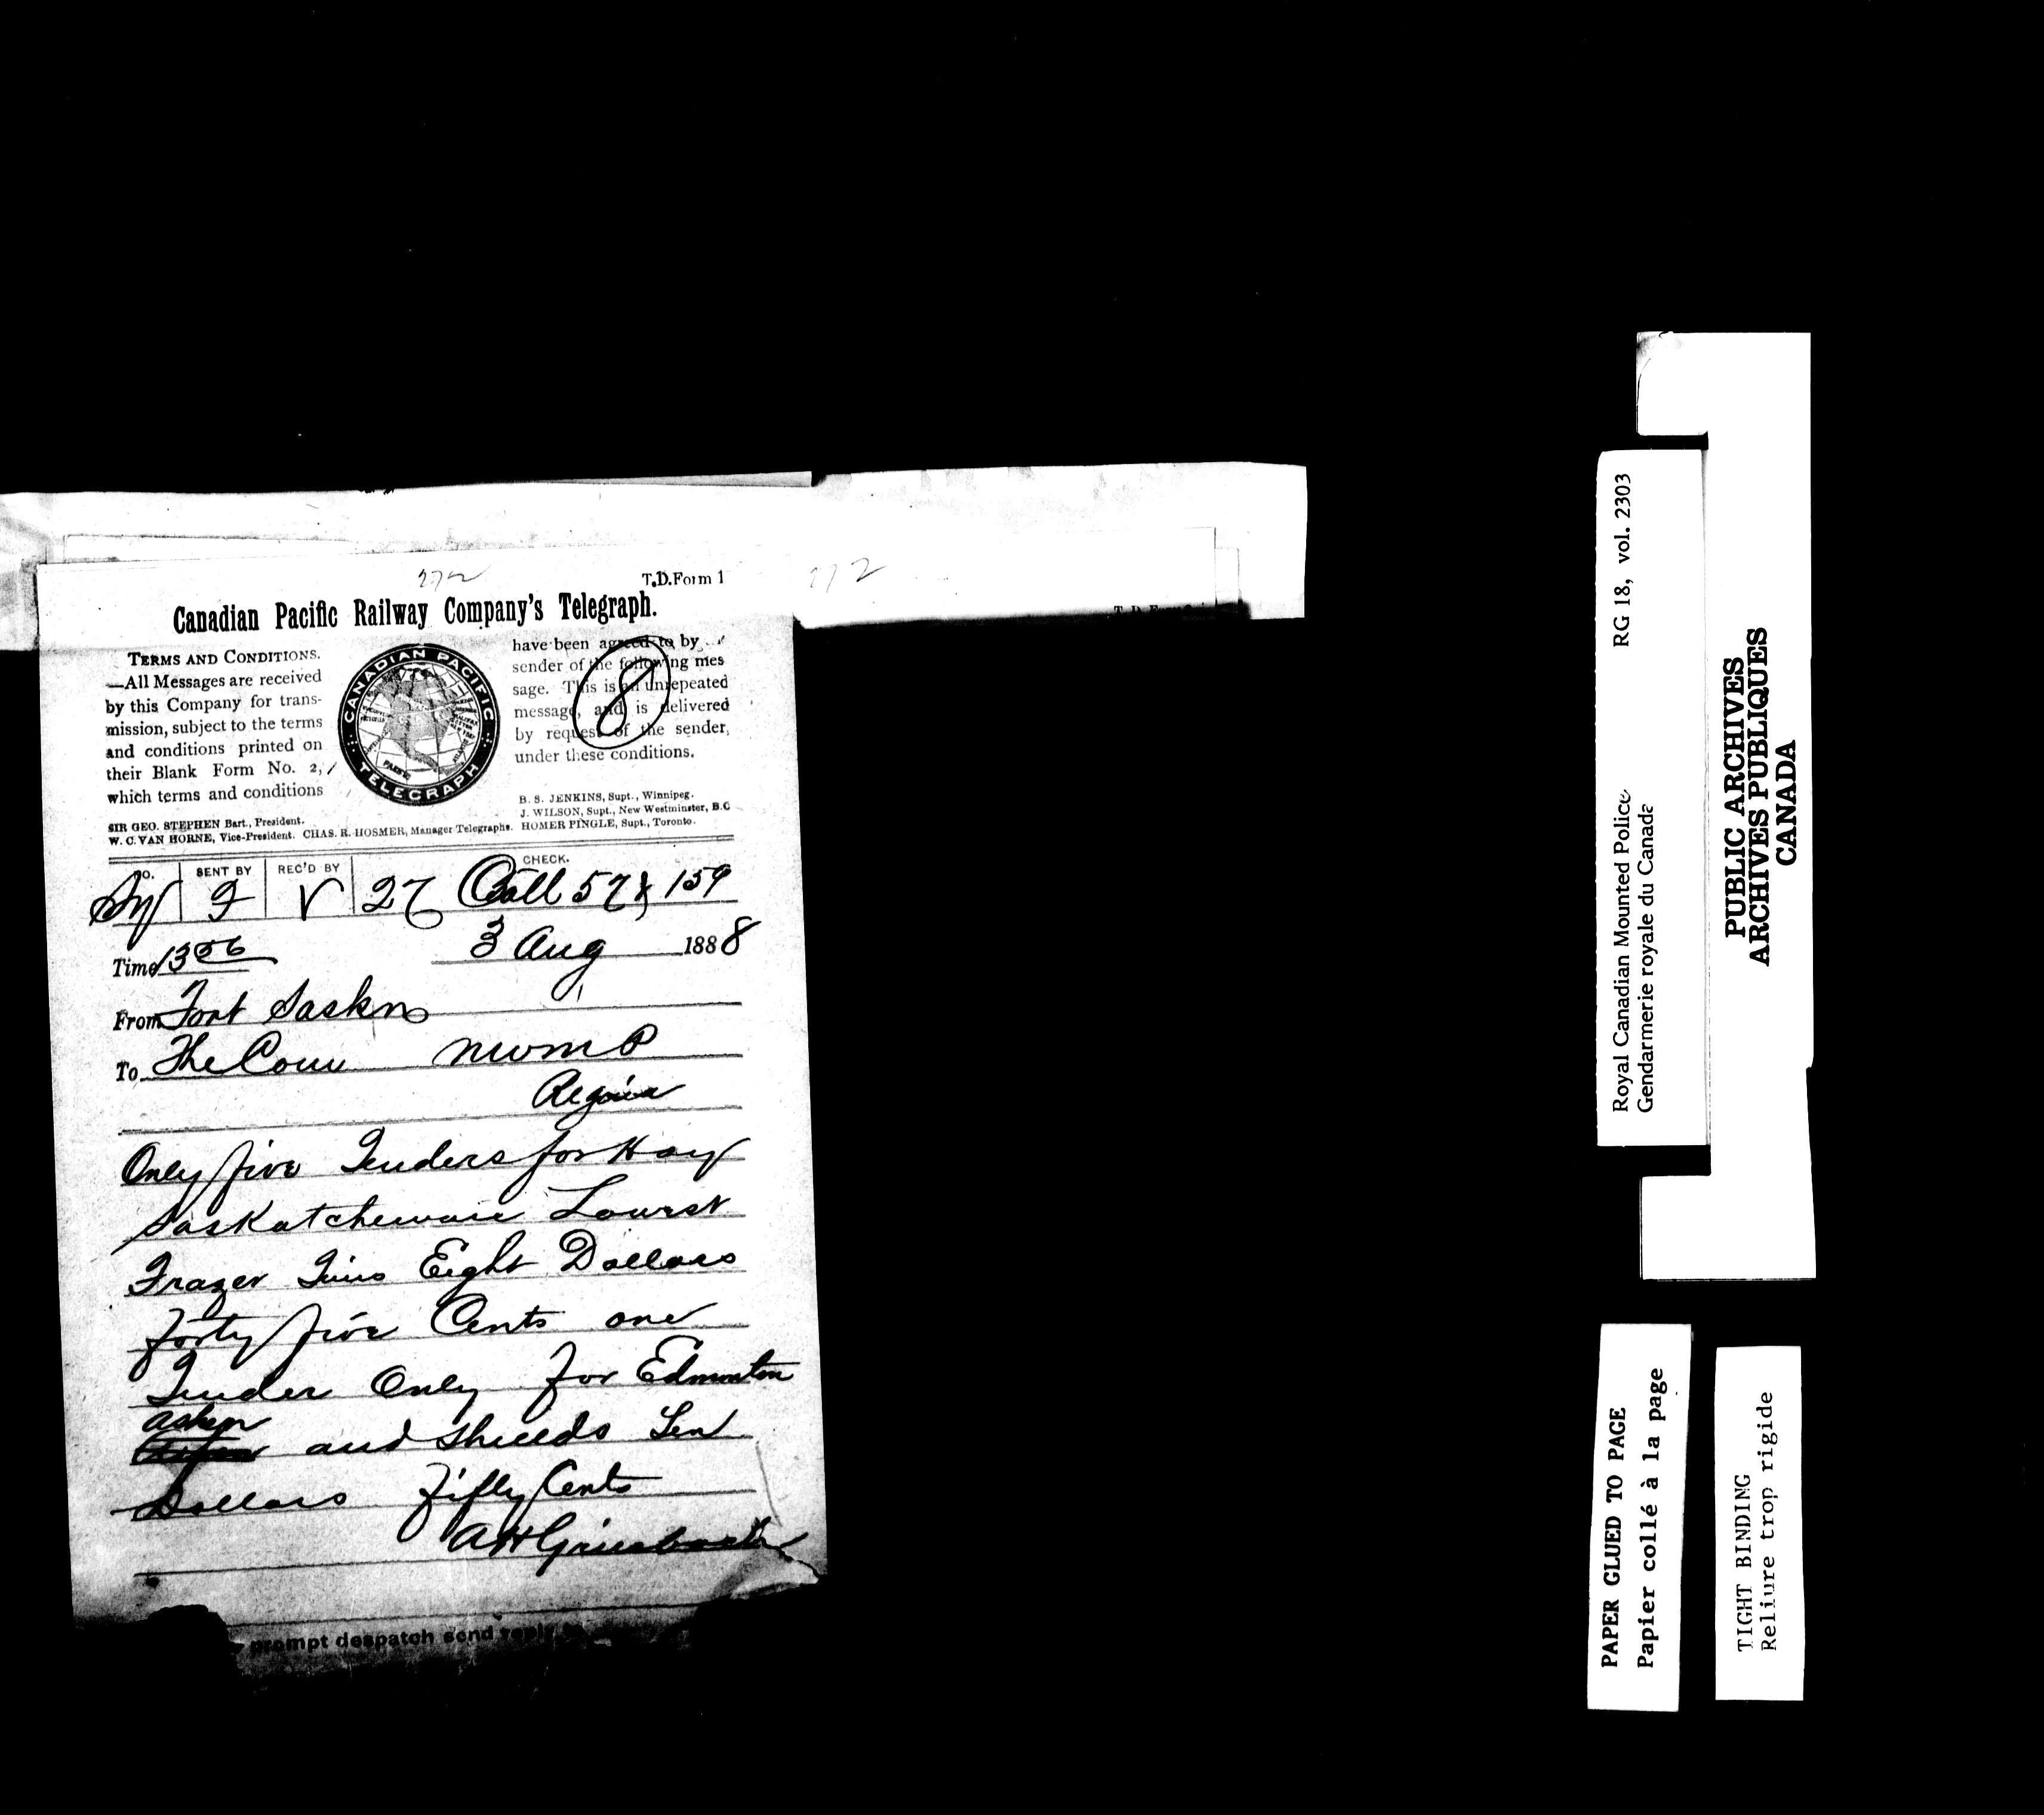 272
T.D.Form 1
272
Canadian Pacific Railway Company's Telegraph.
TERMS AND CONDITIONS.
—All Messages are received
by this Company for trans-
mission, subject to the terms
and conditions printed on
their Blank Form No. 2,
which terms and conditions
CANADIAN PACIFIC
TELEGRAPH
have been agreed to by
sender of the following mes
sage. This is an unrepeated
message, and is delivered
by request of the sender,
under these conditions.
8
B. S. JENKINS, Supt., Winnipeg.
J. WILSON, Supt., New Westminster, B.C
SIR GEO. STEPHEN Bart., President.
W. C. VAN HORNE, Vice-President. CHAS. R. HOSMER, Manager Telegraphs. HOMER PINGLE, Supt., Toronto.
NO. SENT BY REC'D BY CHECK.
27 Coll 57 & 159
Time 1356 3 Aug 1888
From Fort Saskn
To The Com NWMP
Regina
Only five Tenders for Hay
Saskatchewan Lowest
Frazer Tims Eight Dollars
forty five Cents one
Tender Only for Edmonton
and Shields Ten
Dollars fifty Cents
AH Griesbach
prompt despatch send reply
Royal Canadian Mounted Police RG 18, vol. 2303
Gendarmerie royale du Canada
PUBLIC ARCHIVES
ARCHIVES PUBLIQUES
CANADA
PAPER GLUED TO PAGE
Papier collé à la page
TIGHT BINDING
Reliure trop rigide